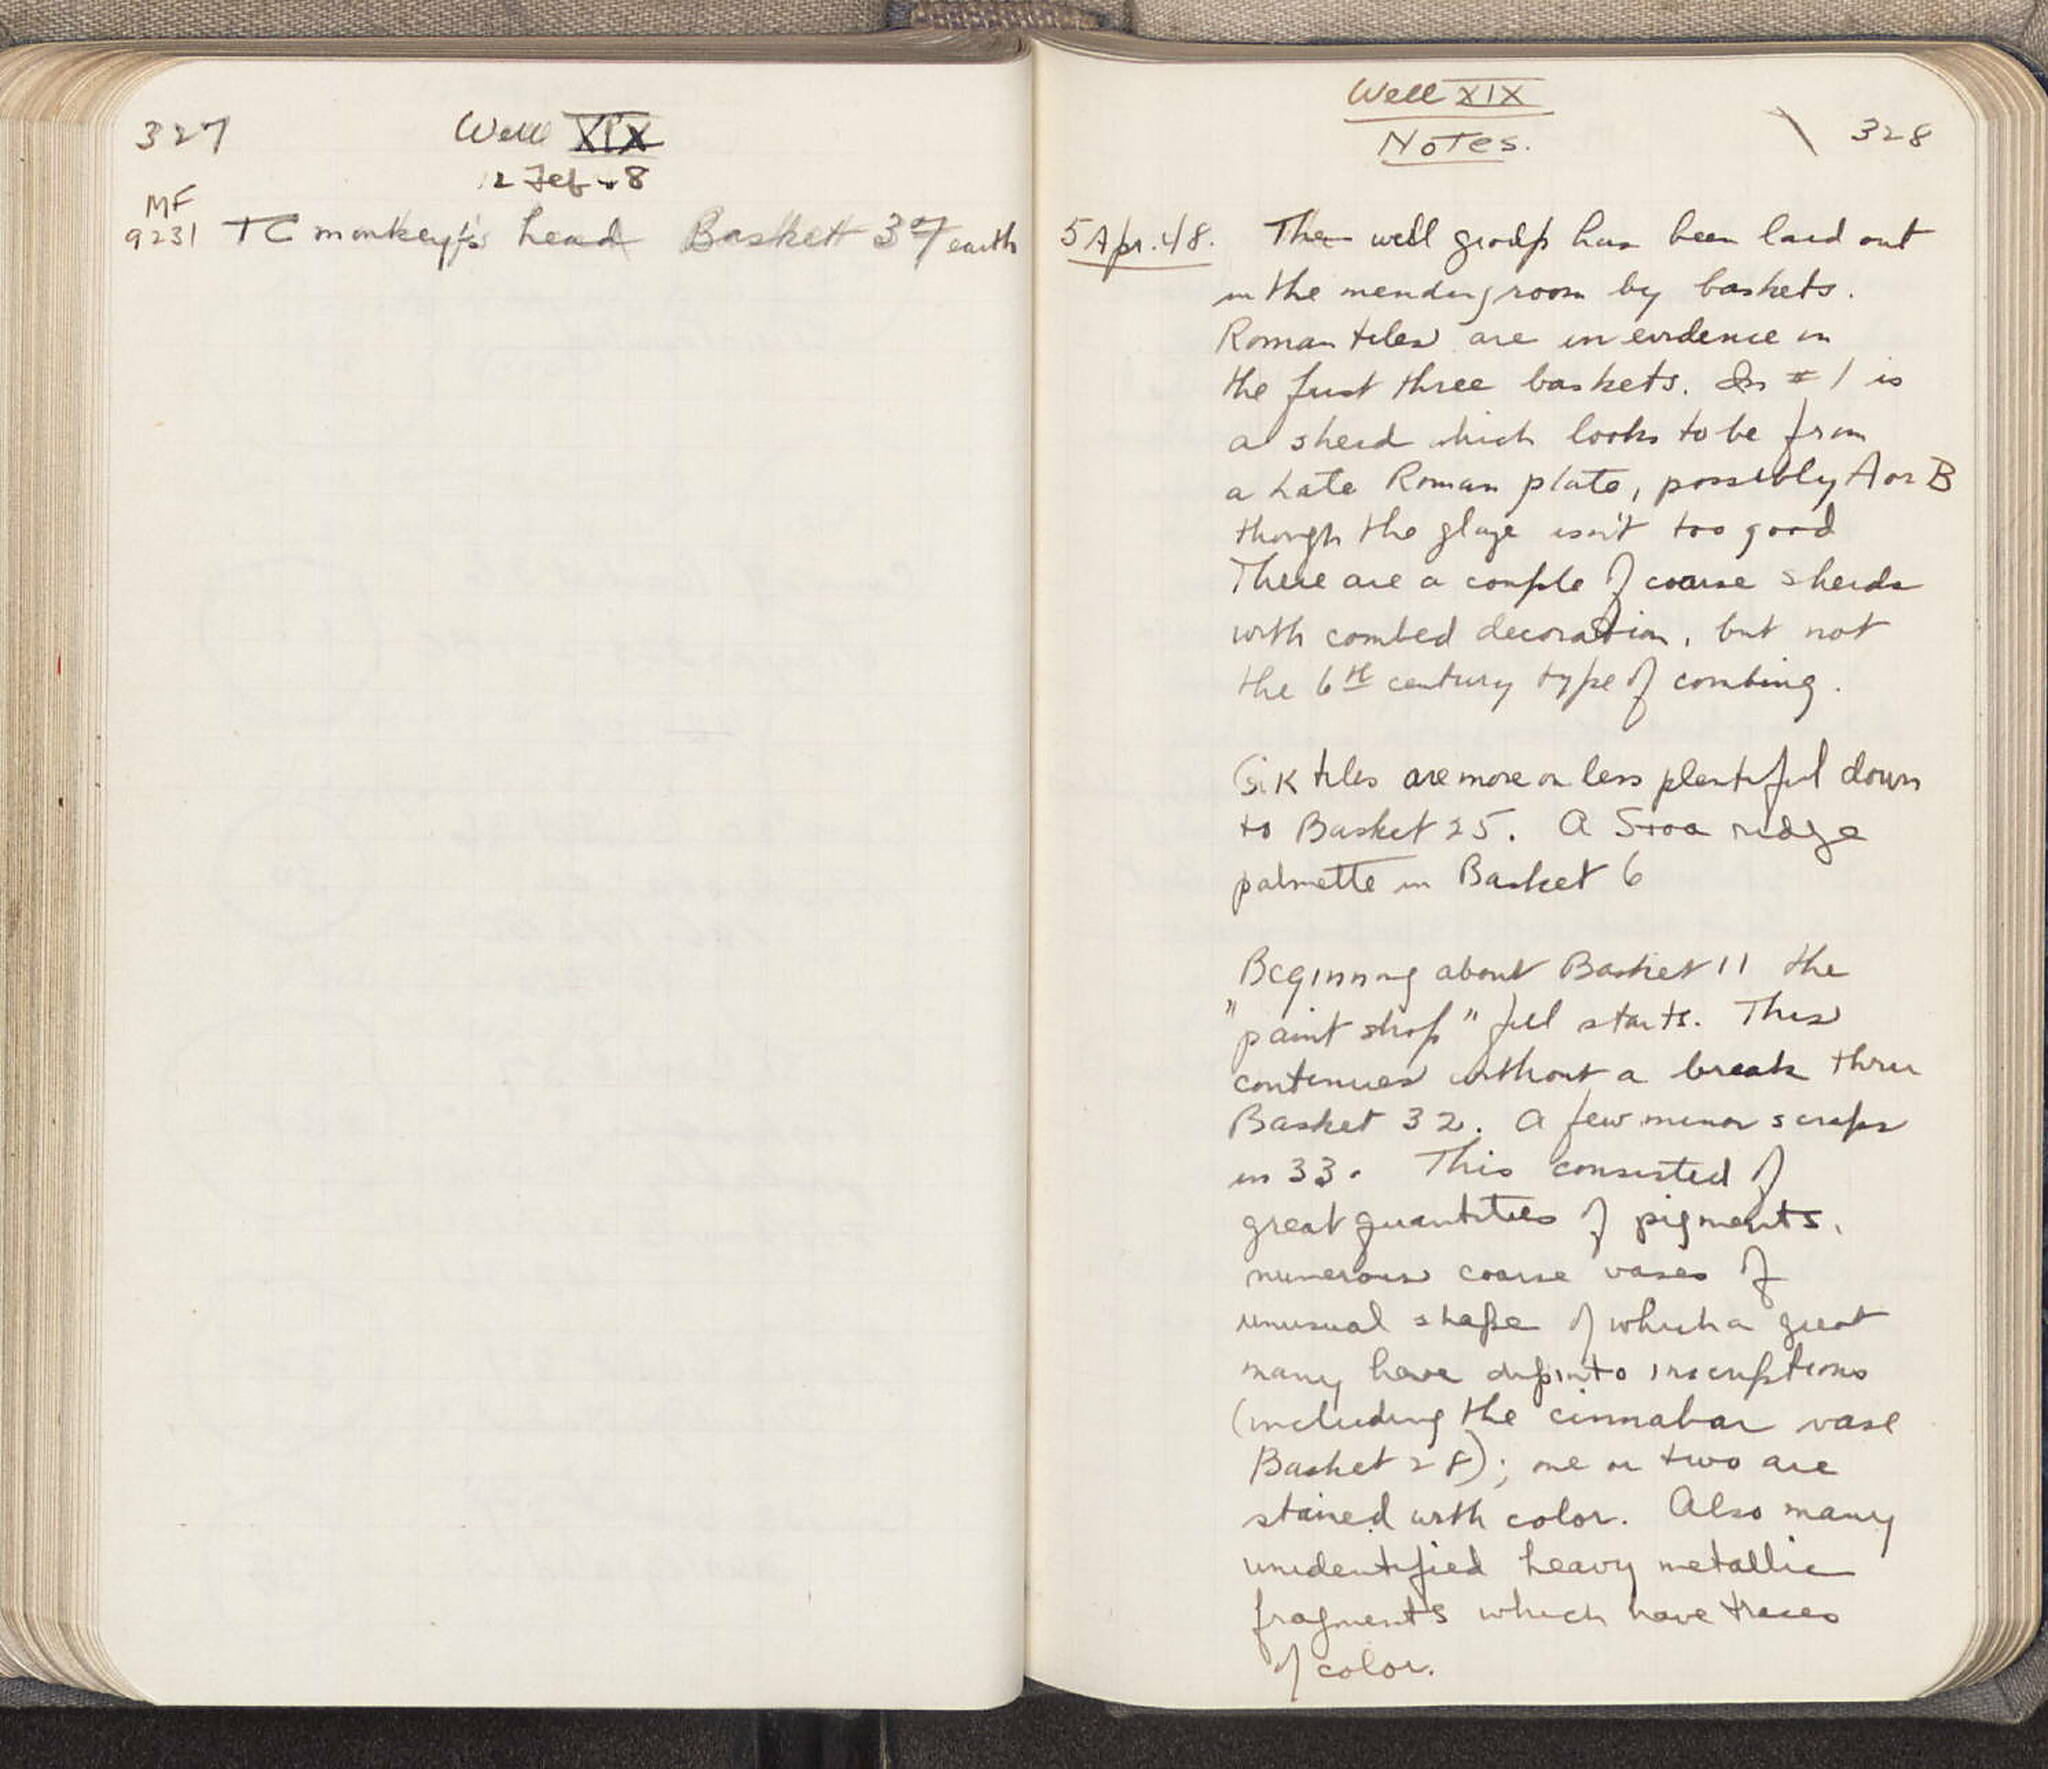 327
Well XIX
12 Feb 48
MF
9231 TC monkey's head Basket 3 of earth
Well XIX
Notes.
328
5 Apr. 48. The well group has been laid out
in the mending room by baskets.
Roman tiles are in evidence in
the first three baskets. In #1 is
a sherd which looks to be from
a Late Roman plate, possibly A or B
though the glaze isn't too good
There are a couple of coarse sherds
with combed decoration, but not
the 6th century type of combing.
Gk tiles are more or less plentiful down
to Basket 25. A Stoa ridge
palmette in Basket 6
Beginning about Basket 11 the
"paint shop" fill starts. This
continues without a break thru
Basket 32. A few minor scraps
in 33. This consisted of
great quantities of pigments,
numerous coarse vases of
unusual shape of which a great
many have dipinto inscriptions
(including the cinnabar vase
Basket 28); one or two are
stained with color. Also many
unidentified heavy metallic
fragments which have traces
of color.